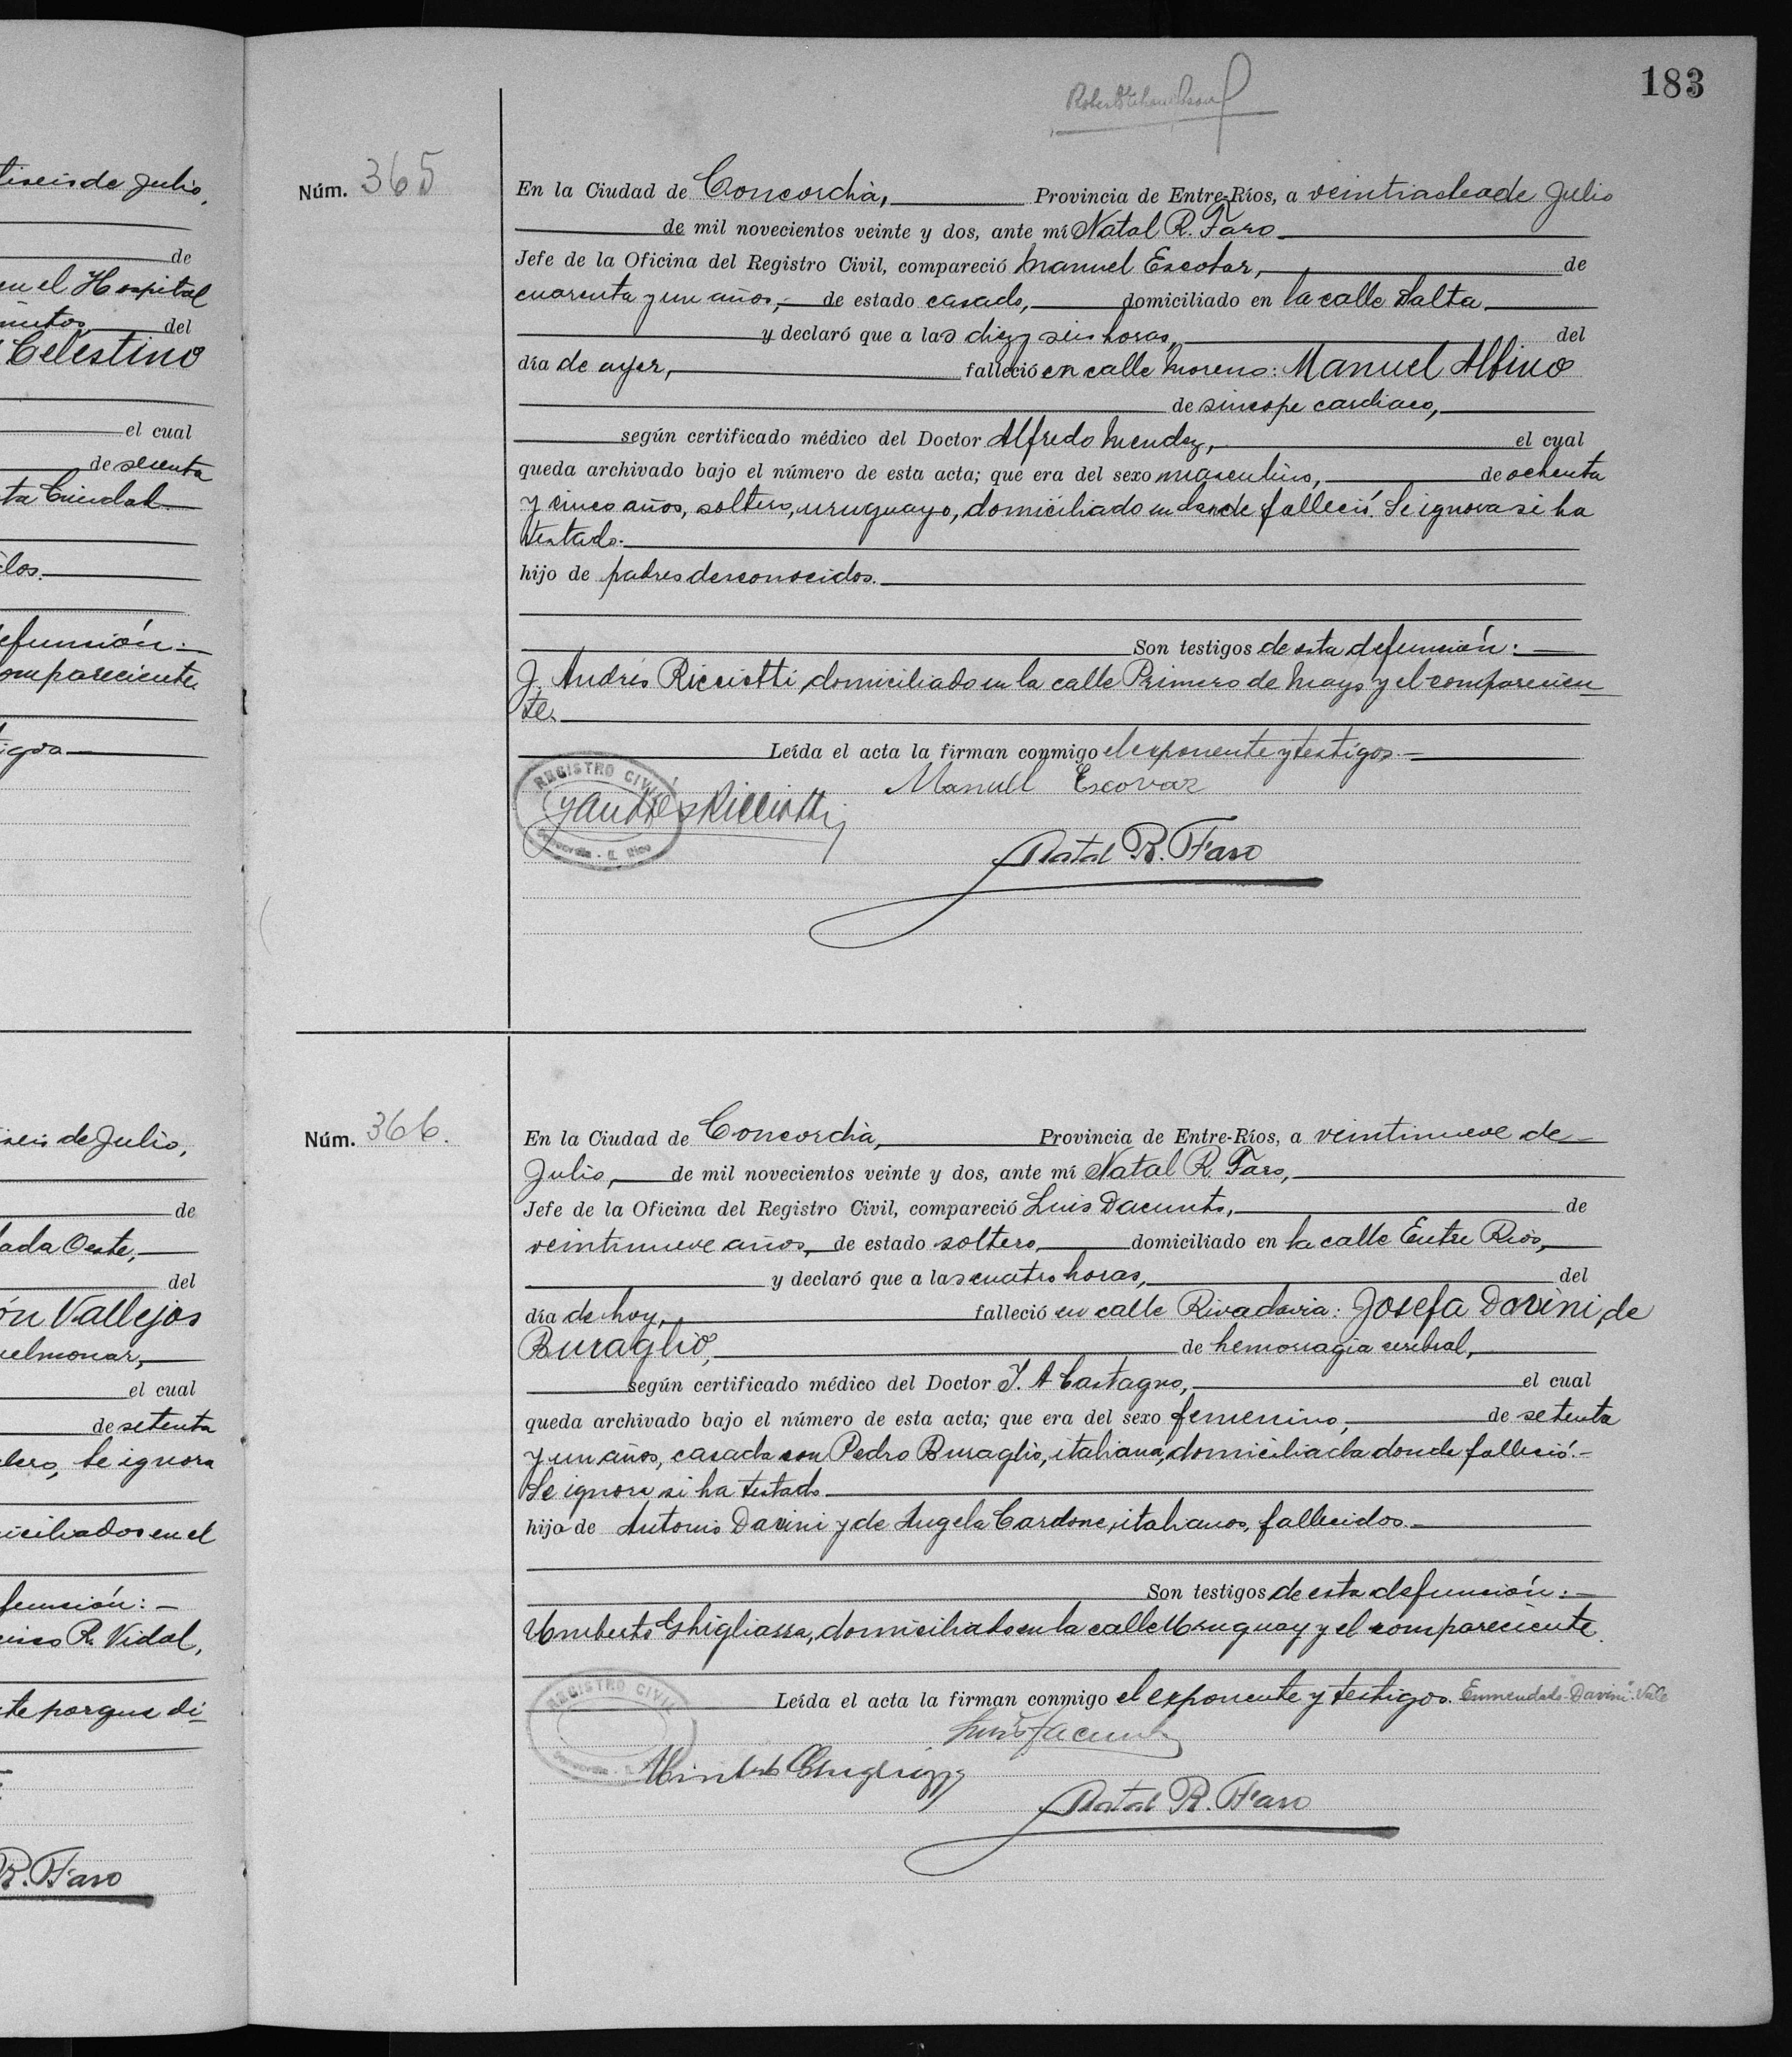 tiseis de Julio,
de
en el Hospital
minutos del
Celestino
el cual
de sesenta
ta Ciudad
dos.
efunción:
ompareciente
tigoa
iseis de Julio,
de
lada Oeste,
del
ón Vallejos
ulmonar,
el cual
de setenta
Se ignora
iciliados en el
función:
R. Vidal,
te porque di-
R. Faro
183
Núm. 365
En la Ciudad de Concordia, Provincia de Entre-Ríos, a veintiocho de Julio
de mil novecientos veinte y dos, ante mí Natal R. Faro
Jefe de la Oficina del Registro Civil, compareció Manuel Escobar, de
cuarenta y un años, de estado casado, domiciliado en la calle Salta
y declaró que a las diez y seis horas, del
día de ayer, falleció en calle Moreno: Manuel Albino
de sincope cardiaco,
según certificado médico del Doctor Alfredo Mendez, el cual
queda archivado bajo el número de esta acta; que era del sexo masculino, de ochenta
y cinco años, soltero, uruguayo, domiciliado en donde falleció. Se ignora si ha
testado.
hijo de padres desconocidos.
Son testigos de esta defunción:
J. Andrés Ricciotti, domiciliado en la calle Primero de Mayo y el comparecien
te.
Leída el acta la firman conmigo el exponente y testigos.
REGISTRO CIVIL
Manuel Escovar
J Andrés Ricciotti
Concordia - E. Ríos
Natal R. Faro
Núm. 366.
En la Ciudad de Concordia, Provincia de Entre-Ríos, a veintinueve de
Julio, de mil novecientos veinte y dos, ante mí Natal R. Faro,
Jefe de la Oficina del Registro Civil, compareció Luis Dacunto, de
veintinueve años, de estado soltero, domiciliado en la calle Entre Rios,
y declaró que a las cuatro horas, del
día de hoy, falleció en calle Rivadavia: Josefa Davini de
Buraglio, de hemorragia cerebral,
según certificado médico del Doctor J. A Castagno, el cual
queda archivado bajo el número de esta acta; que era del sexo femenino, de setenta
y un años, casada con Pedro Buraglio, italiana, domiciliada donde falleció.-
Se ignora si ha testado
hija de Antonio Davini y de Angela Cardone, italianos, fallecidos.
Son testigos de esta defunción:
Umberto Ghigliazza, domiciliado en la calle Uruguay y el compareciente.
Leída el acta la firman conmigo el exponente y testigos. Enmendado "Davini" Vale
REGISTRO CIVIL
Natal R. Faro